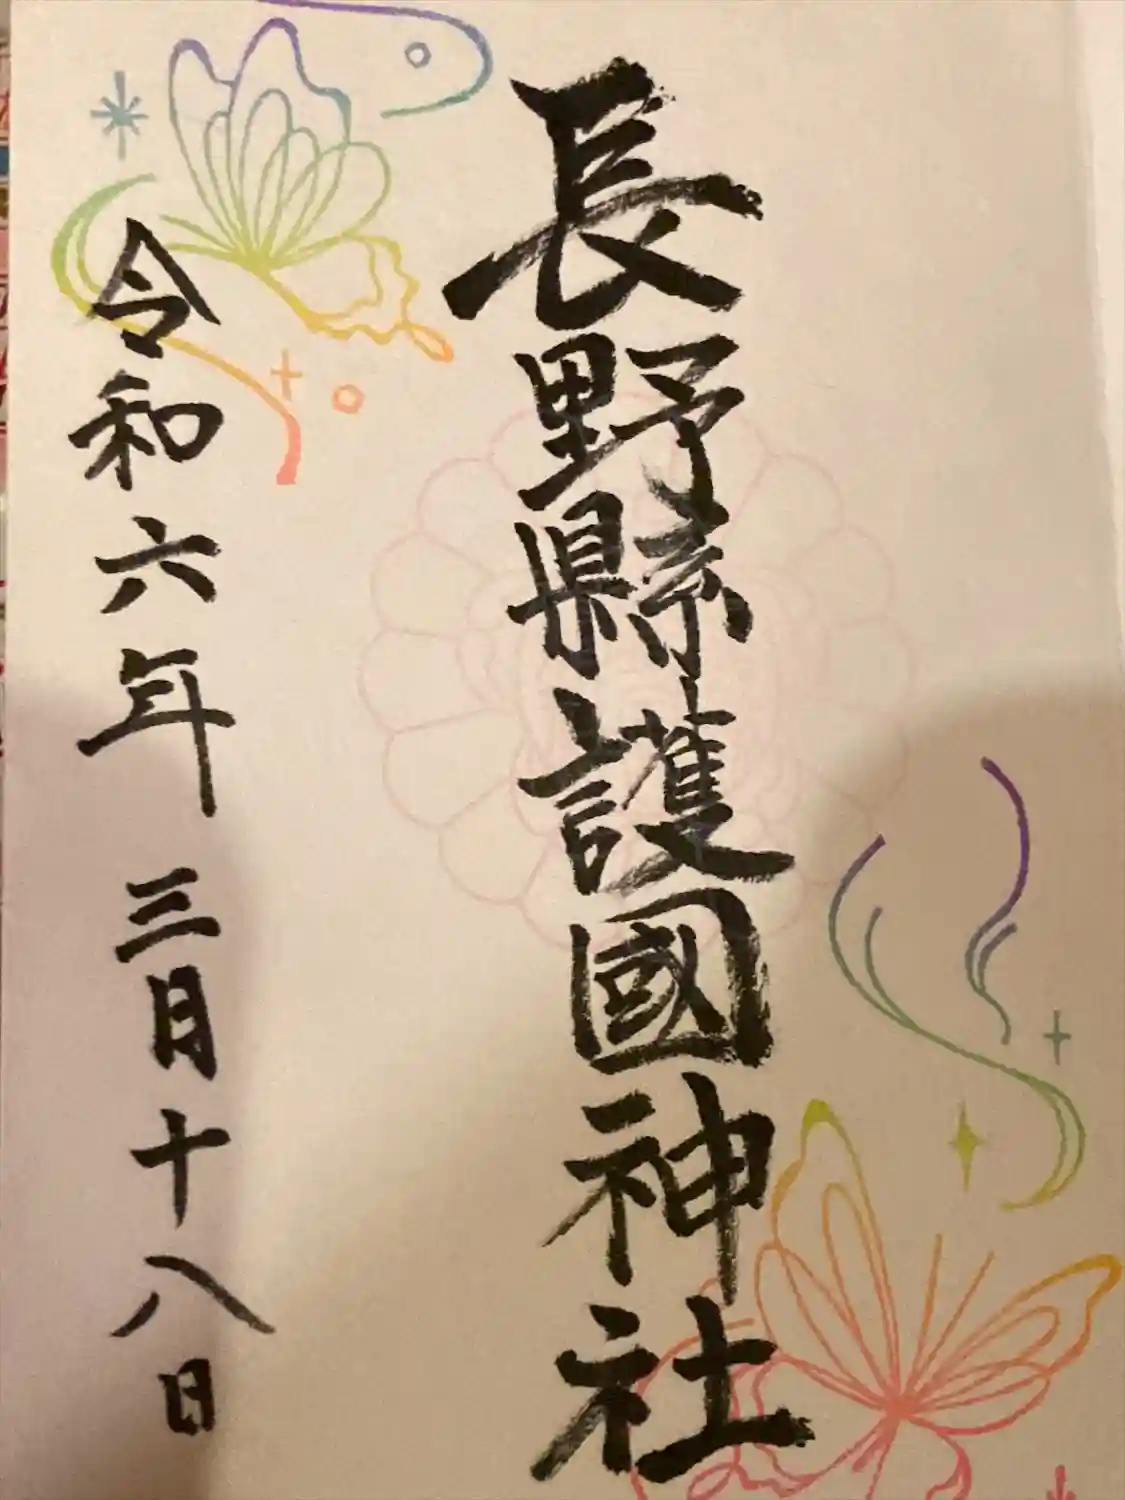 長野縣護國神社
令和六年三月十八日